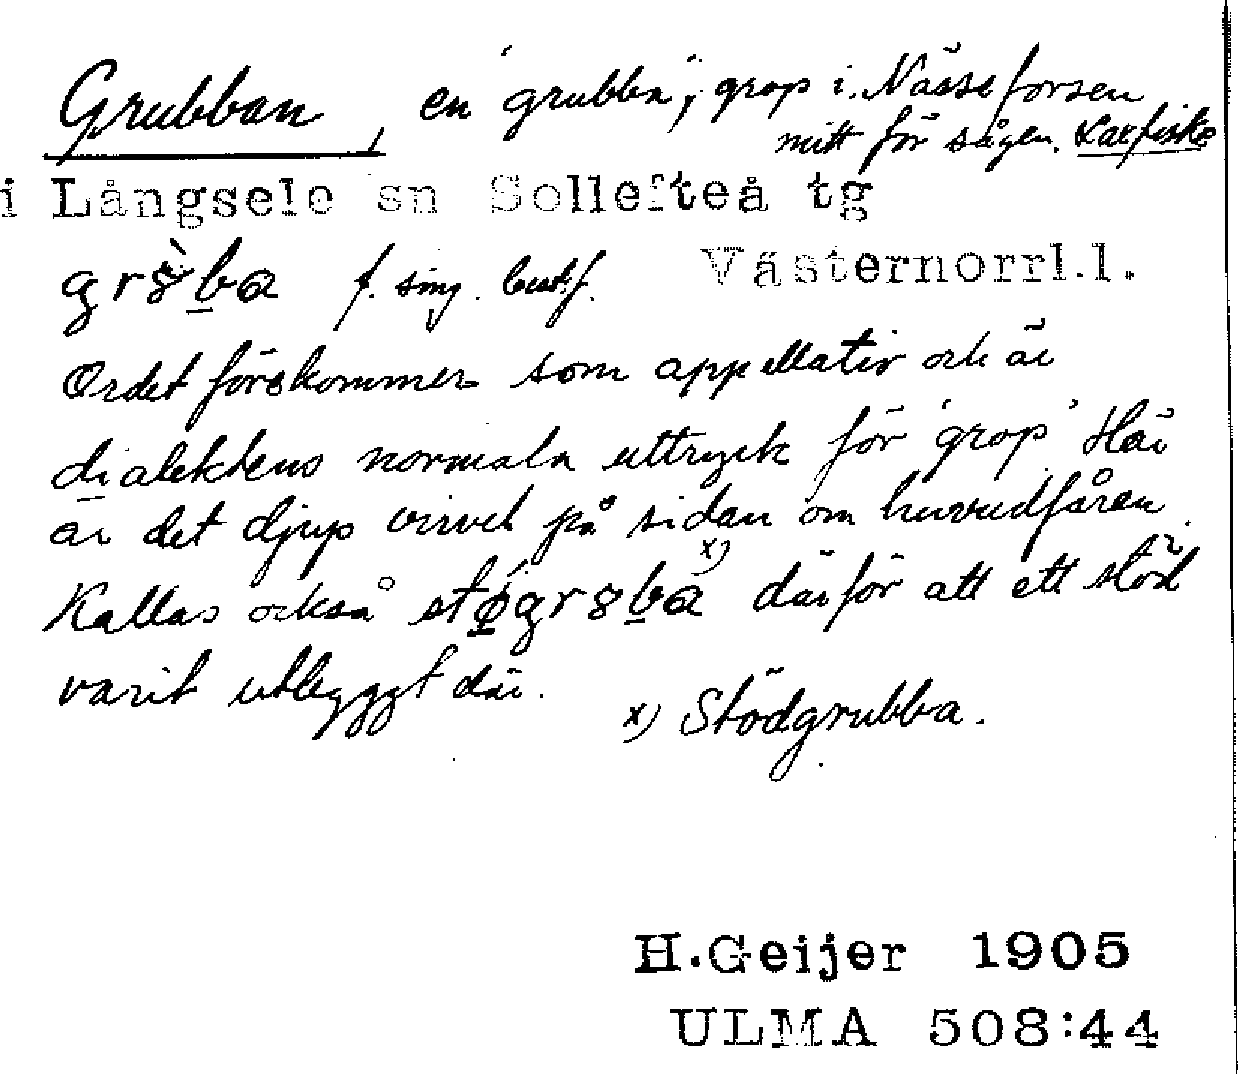 Grubban, en 'grubba', grop i Nässeforsen
mitt för sågen. Laxfiske
i Långsele sn Sollefteå tg
Västernorrl.l.
f. sing. best.f.
Ordet förekommer som appellativ och är
dialektens normala uttryck för 'grop' Här
är det djup virvel på sidan om huvudfåran.
Kallas också stø̀gr8ba x) därför att ett stöd
varit utbyggt där.
x) Stödgrubba.
H.Geijer 1905
ULMA 508:44